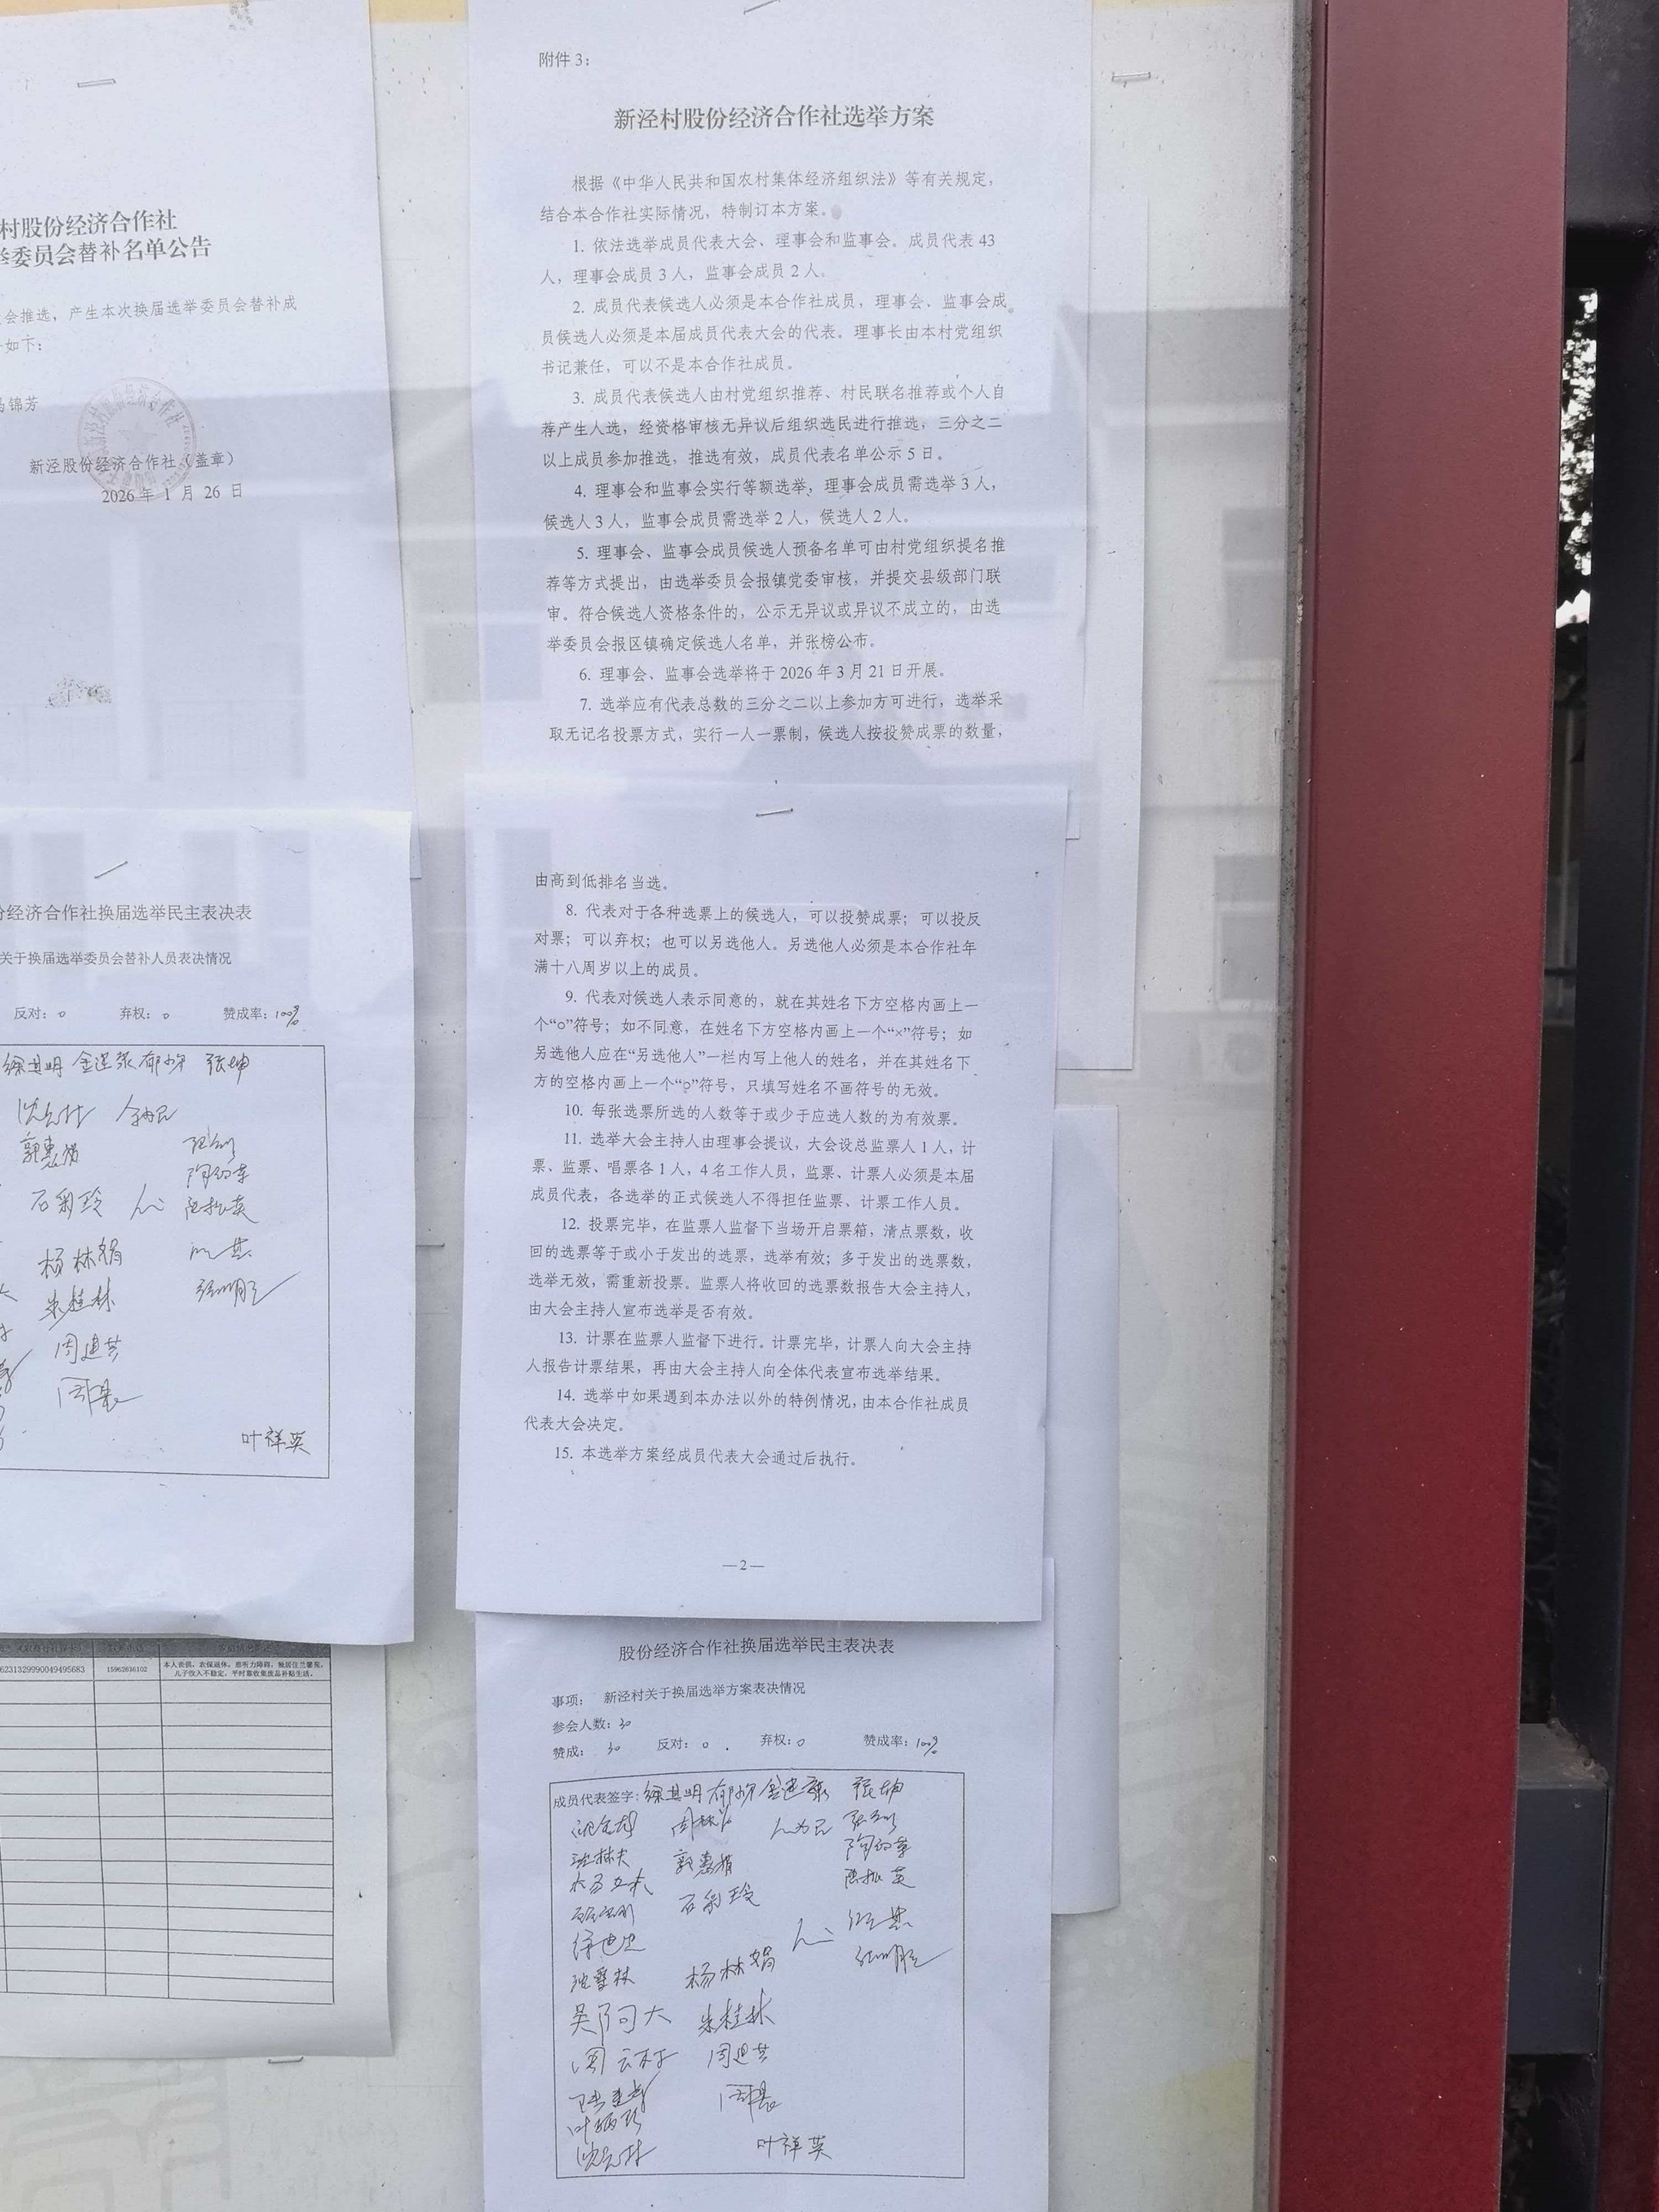 村股份经济合作社
举委员会替补名单公告
会推选，产生本次换届选举委员会替补成
如下：
锦芳
新泾股份经济合作社（盖章）
2026年1月26日
份经济合作社换届选举民主表决表
关于换届选举委员会替补人员表决情况
反对：0 弃权：0 赞成率：100%
徐其明 张坤
郭惠娟
石彩玲
杨林娟
朱桂林
周进芬
叶祥英
6231329990049495683 15962636102 本人丧偶，农保退休，患听力障碍，独居住兰馨苑，
儿子收入不稳定，平时靠收集废品补贴生活。
附件 3：
新泾村股份经济合作社选举方案
根据《中华人民共和国农村集体经济组织法》等有关规定，
结合本合作社实际情况，特制订本方案。
1. 依法选举成员代表大会、理事会和监事会。成员代表 43
人，理事会成员 3 人，监事会成员 2 人。
2. 成员代表候选人必须是本合作社成员，理事会、监事会成
员候选人必须是本届成员代表大会的代表。理事长由本村党组织
书记兼任，可以不是本合作社成员。
3. 成员代表候选人由村党组织推荐、村民联名推荐或个人自
荐产生人选，经资格审核无异议后组织选民进行推选，三分之二
以上成员参加推选，推选有效，成员代表名单公示 5 日。
4. 理事会和监事会实行等额选举，理事会成员需选举 3 人，
候选人 3 人，监事会成员需选举 2 人，候选人 2 人。
5. 理事会、监事会成员候选人预备名单可由村党组织提名推
荐等方式提出，由选举委员会报镇党委审核，并提交县级部门联
审。符合候选人资格条件的，公示无异议或异议不成立的，由选
举委员会报区镇确定候选人名单，并张榜公布。
6. 理事会、监事会选举将于 2026 年 3 月 21 日开展。
7. 选举应有代表总数的三分之二以上参加方可进行，选举采
取无记名投票方式，实行一人一票制，候选人按投赞成票的数量，
由高到低排名当选。
8. 代表对于各种选票上的候选人，可以投赞成票；可以投反
对票；可以弃权；也可以另选他人。另选他人必须是本合作社年
满十八周岁以上的成员。
9. 代表对候选人表示同意的，就在其姓名下方空格内画上一
个“o”符号；如不同意，在姓名下方空格内画上一个“×”符号；如
另选他人应在“另选他人”一栏内写上他人的姓名，并在其姓名下
方的空格内画上一个“o”符号，只填写姓名不画符号的无效。
10. 每张选票所选的人数等于或少于应选人数的为有效票。
11. 选举大会主持人由理事会提议，大会设总监票人 1 人，计
票、监票、唱票各 1 人，4 名工作人员，监票、计票人必须是本届
成员代表，各选举的正式候选人不得担任监票、计票工作人员。
12. 投票完毕，在监票人监督下当场开启票箱，清点票数，收
回的选票等于或小于发出的选票，选举有效；多于发出的选票数，
选举无效，需重新投票。监票人将收回的选票数报告大会主持人，
由大会主持人宣布选举是否有效。
13. 计票在监票人监督下进行。计票完毕，计票人向大会主持
人报告计票结果，再由大会主持人向全体代表宣布选举结果。
14. 选举中如果遇到本办法以外的特例情况，由本合作社成员
代表大会决定。
15. 本选举方案经成员代表大会通过后执行。
—2—
股份经济合作社换届选举民主表决表
事项： 新泾村关于换届选举方案表决情况
参会人数：30
赞成： 30 反对：0 弃权：0 赞成率：100%
成员代表签字：徐其明 张坤
郭惠娟
石彩玲
杨林娟
吴阿大 朱桂林
周进芬
叶祥英